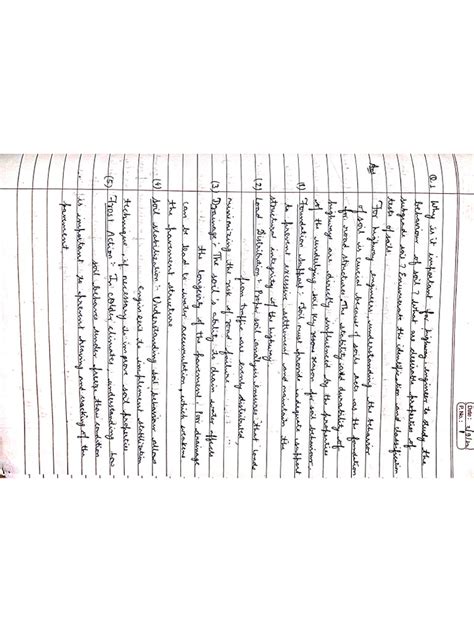 Date: 
P. No.: 1
Q.1 Why is it important for highway engineer to study the
behaviour of soil? What are desirable properties of
subgrade soil? Enumerate the identification and classification
tests of soils.
Ans For highway engineers, understanding the behavior
of soil is crucial because of soils acts as the foundation
for road structures. The stability and durability of
highway are directly influenced by the properties
of the underlying soil key reason for soil behaviour.
(1) Foundation support: Soil must provide adequate support
to prevent excessive settlement and maintain the
structural integrity of the highway.
(2) Load Distribution: Proper soil analysis ensures that loads
from traffic are evenly distributed
minimizing the risk of road failure.
(3) Drainage: The soil's ability to drain water affects
the longevity of the pavement. Poor drainage
can be lead to water accumulation, which weakens
the pavement structure
(4) Soil stabilization: Understanding soil behaviour allows
engineers to implement stabilization
techniques if necessary to improve soil properties
(5) Frost Action:- In colder climates, understanding how
soil behaves under freeze thaw condition
is important to prevent heaving and cracking of the
pavement.